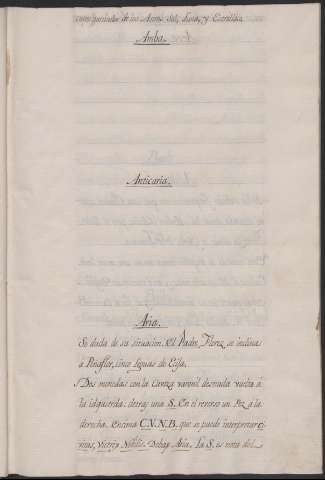 correspondientes de los Arcos, Sol, Luna, y Estrellas.
Amba.
Anticaria.
Aria.
Se duda de su situacion. El Padre Florez se inclina
á Peñaflor, cinco Leguas de Ecija.
Dos monedas con la Cabeza varonil desnuda vuelta á
la izquierda: detras una S. En el reverso un Pez á la
derecha. Encima C.V.N.B. que se puede interpretar Ci-
vitas, Victrix Nobilis. Debajo Aria. La S. es nota del